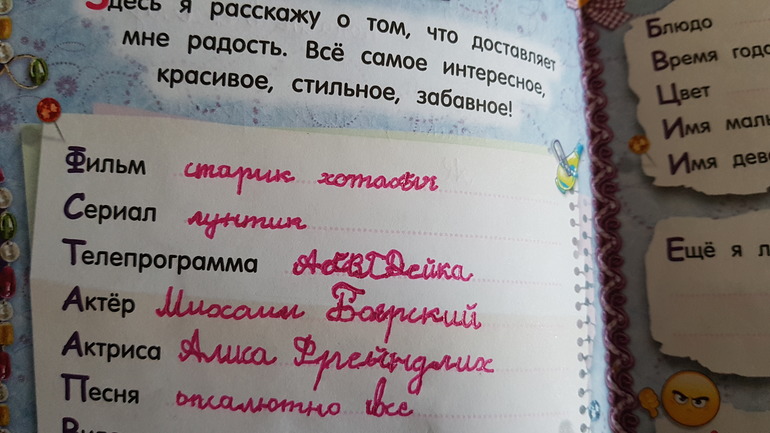 Здесь я расскажу о том, что доставляет
мне радость. Всё самое интересное,
красивое, стильное, забавное!
Фильм старик хотабыч
Сериал лунтик
Телепрограмма АБВГДейка
Актёр Михаил Боярский
Актриса Алиса Фрейндлих
Песня опсалютно все
Блюдо
Время года
Цвет
Имя
Имя
Ещё я